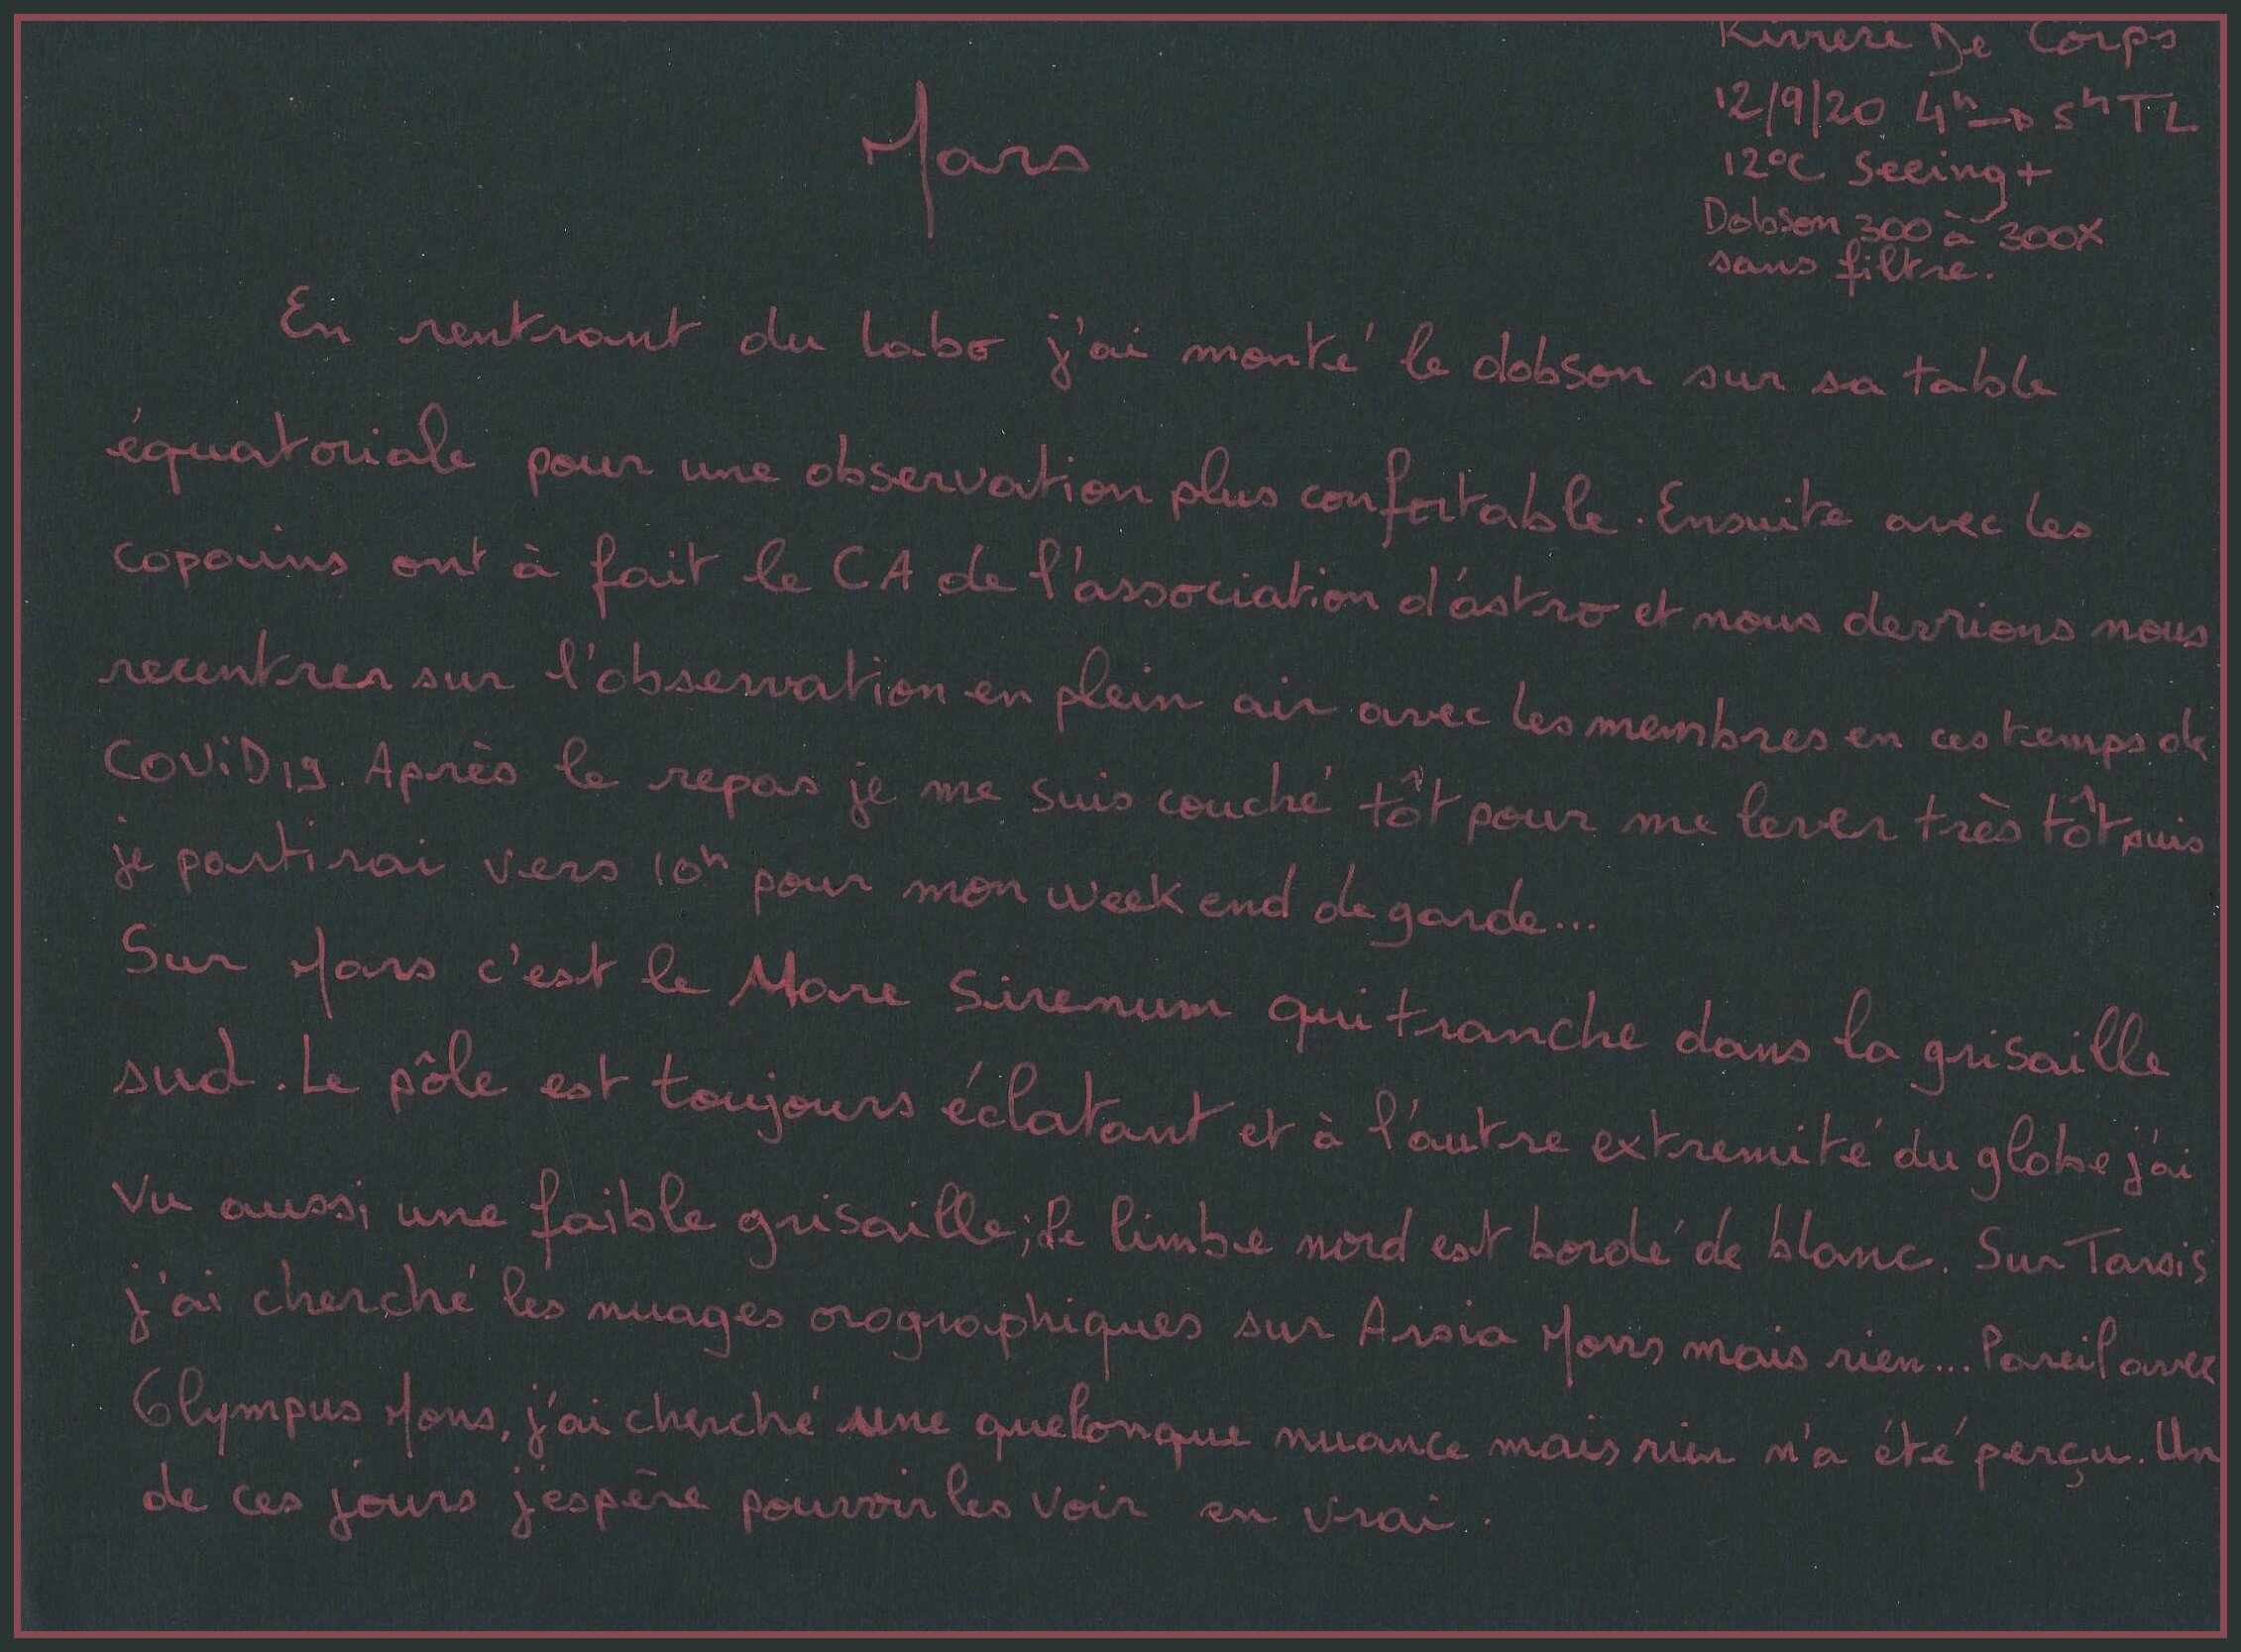 Rivière De Corps
12/9/20 4h → 5h TL
12°C Seeing +
Dobson 300 à 300X
sans filtre.
Mars
En rentrant du labo j'ai monté le dobson sur sa table
équatoriale pour une observation plus confortable. Ensuite avec les
copains ont à fait le CA de l'association d'astro et nous devrions nous
recentrer sur l'observation en plein air avec les membres en ces temps de
COViD19. Après le repas je me suis couché tôt pour me lever très tôt puis
je partirai vers 10h pour mon week end de garde...
Sur Mars c'est le Mare Sirenum qui tranche dans la grisaille
sud. Le pôle est toujours éclatant et à l'autre extremité du globe j'ai
vu aussi une faible grisaille; le limbe nord est bordé de blanc. Sur Tarsis
j'ai cherché les nuages orographiques sur Arsia Mons mais rien... Pareil avec
Olympus Mons, j'ai cherché une quelconque nuance mais rien n'a été perçu. Un
de ces jours j'espère pouvoir les voir en vrai.